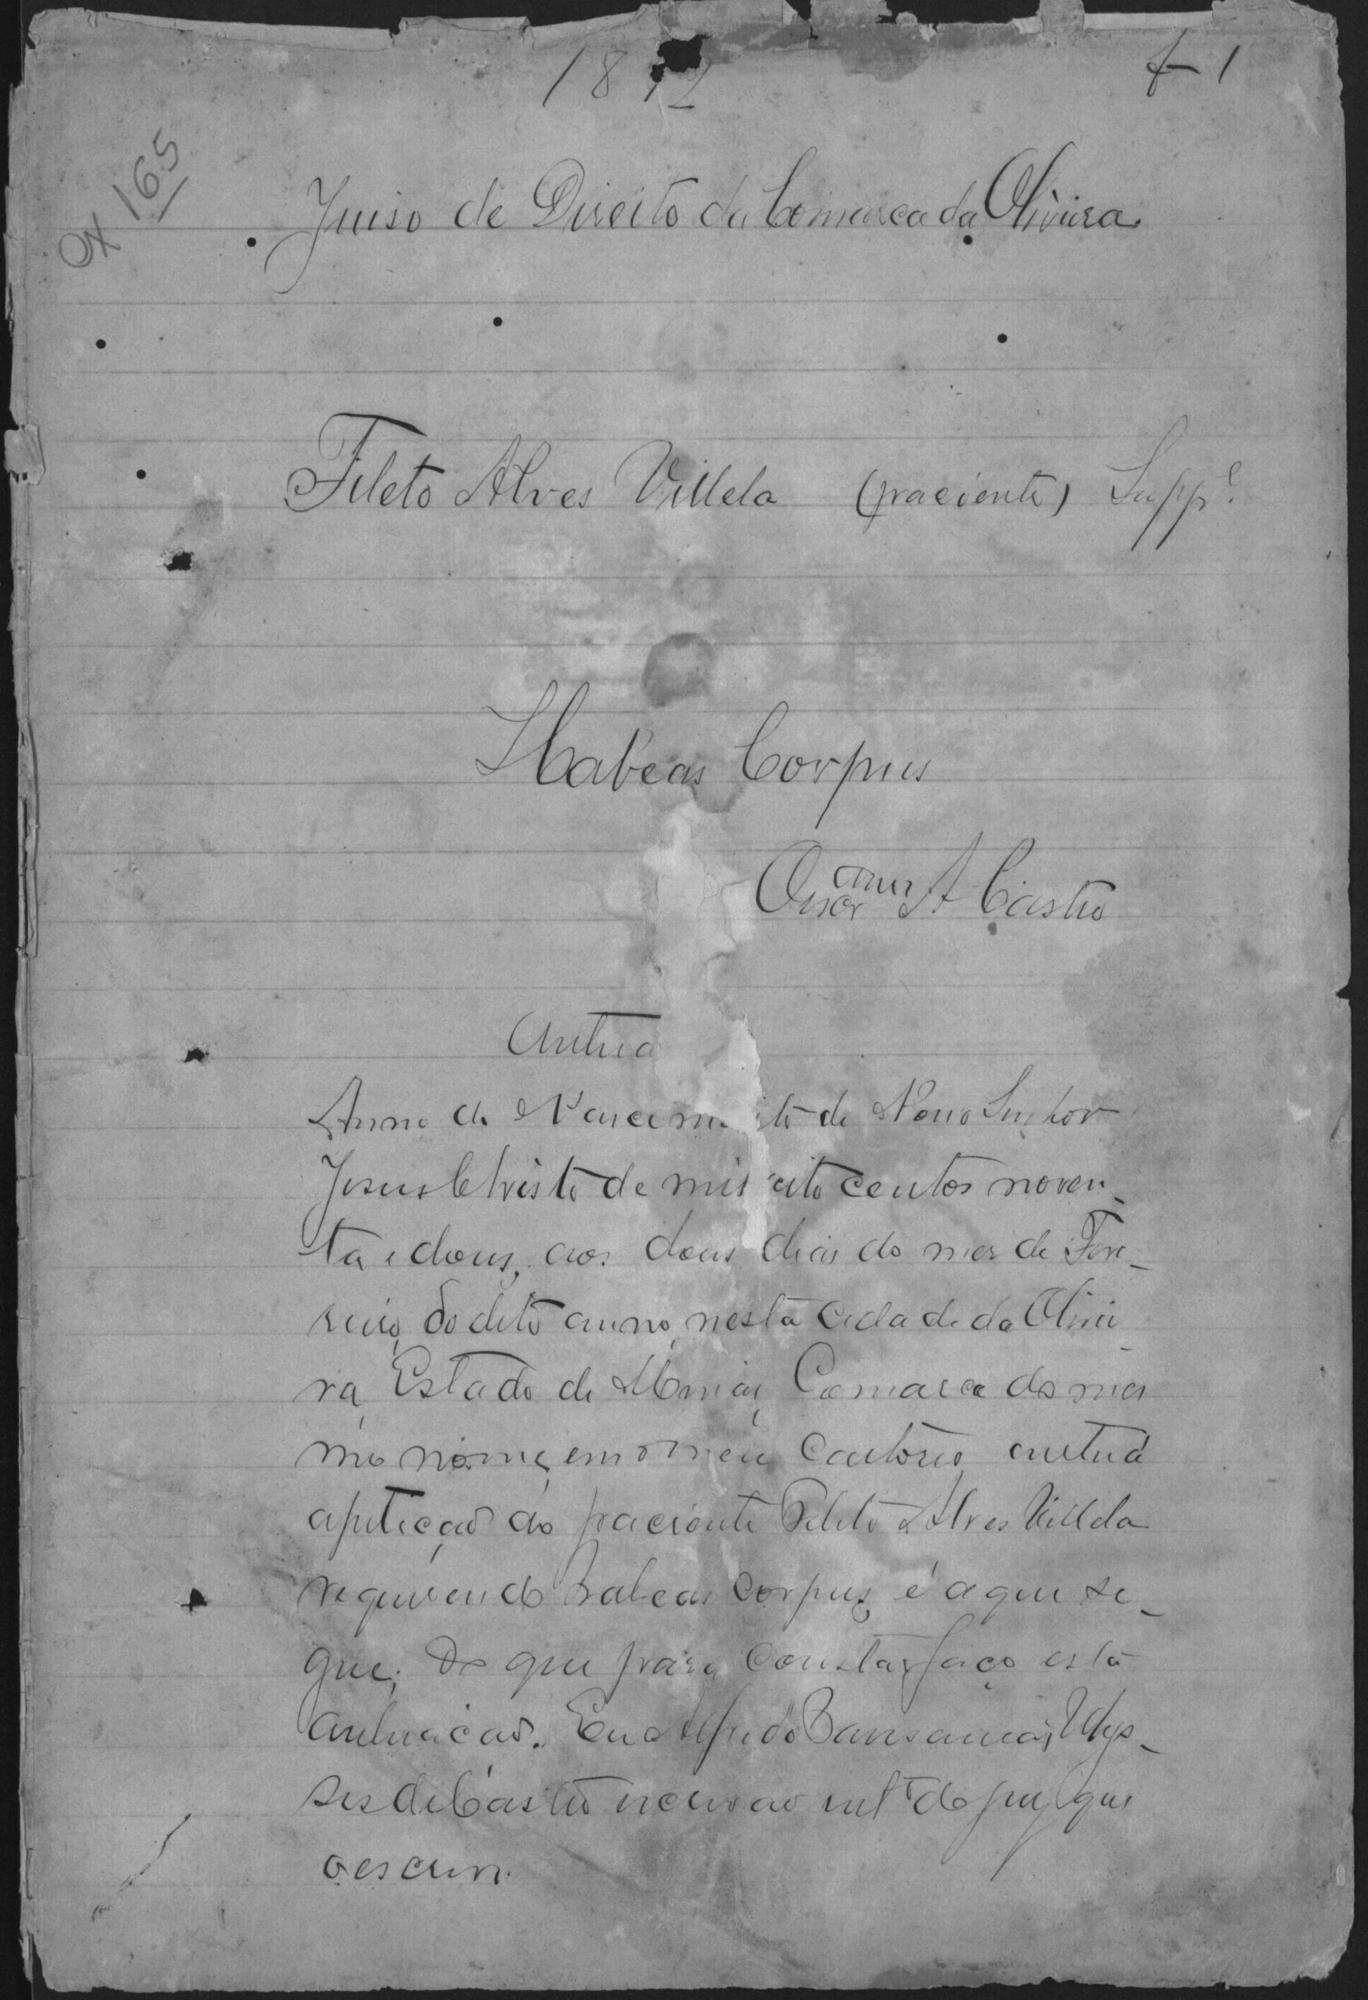 1892
f 1
Cx 165
Juiso de Direito da Comarca da Oliveira
Fileto Alves Villela (paciente) Supp.e
Habeas Corpus
A Castro
Autua
Anno do Nascimento de Nosso Senhor
Jesus Christo de mil oito centos noven_
ta e dous, aos dous dias do mes de Feve_
reiro do dito anno, nesta cidade da Olivei
ra, Estado de Minas, Comarca do mes
mo nome, em o meu Cartorio autuá
a petição do paciente Fileto Alves Villela
requerendo habeas corpus, é a que se_
gue; do que para constar faço esta
autuacão. Eu Alfredo Pausanias, Ulys_
ses de Castro escrivão do jury que
o escrevi.